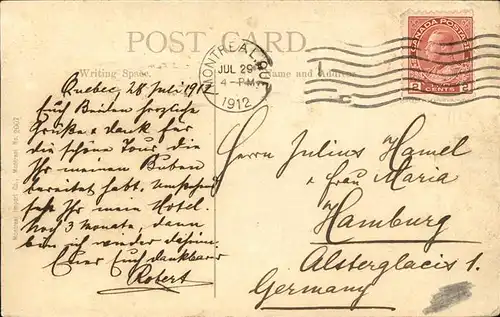 POST CARD
Writing Space.
Name and Address
MONTREAL QUE.
JUL 29
4-PM
1912
CANADA POSTAGE
2 CENTS 2
Quebec, 28 Juli 1912
Euch Beiden herzliche
Grüße & dank für
die schöne Tour die
Ihr meinen Buben
bereitet habt. Umstehend
seht Ihr mein Hotel.
Noch 3 Monate, dann
bin ich wieder daheim.
Euer Euch dankbarer
Robert
Herrn Julius Hamel
& frau Maria
Hamburg
Alsterglacis 1.
Germany